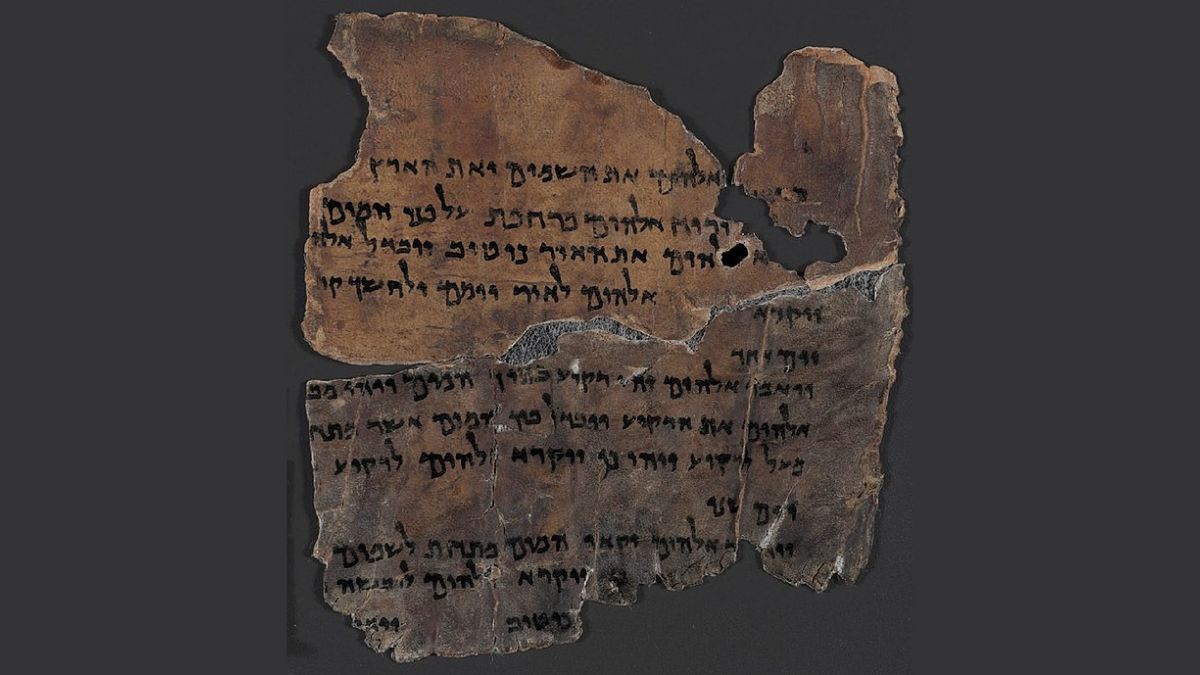 אלהים את השמים ואת הארץ
ורוח אלהים מרחפת על פני המים
להים את האור כי טוב ויבדל אלה
אלהים לאור יומם ולחשך קר
ויקרא
יום אחד
ויאמר אלהים יהי רקיע בתוך המים ויהי מב
אלהים את הרקיע ויבדל בין המים אשר מתח
מעל לרקיע ויהי כן ויקרא אלהים לרקיע
יום שני
אלהים יקאו המים מתחת לשמים
ויקרא אלהים ליבשה
כי טוב